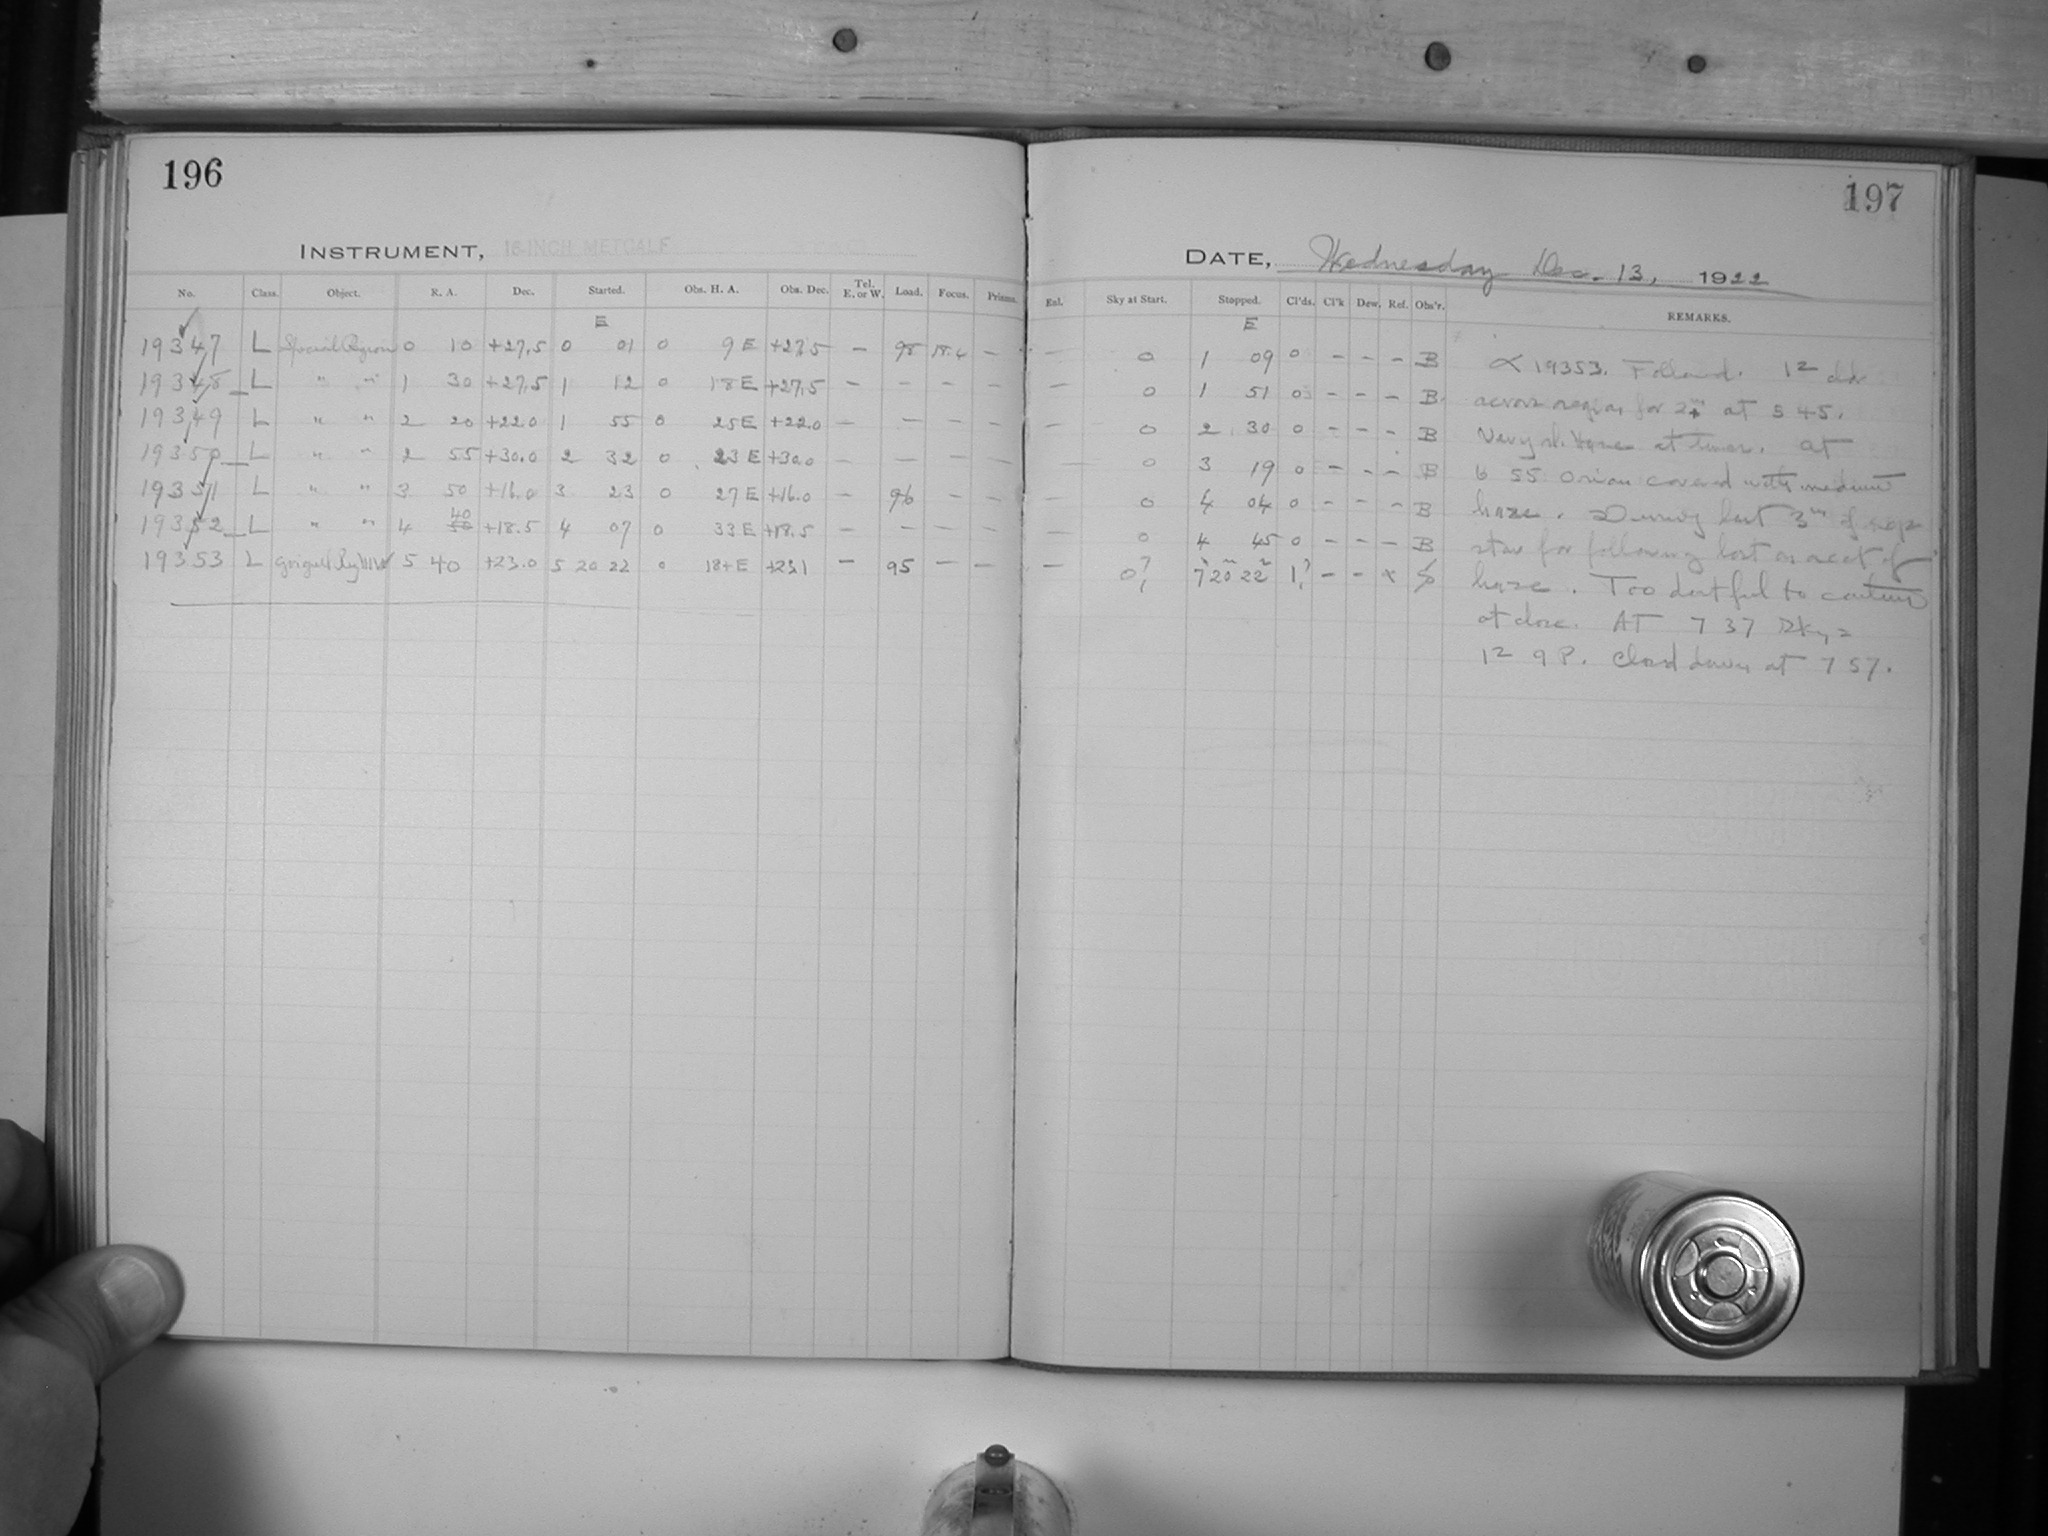 196
197
INSTRUMENT, 16-INCH METCALF
DATE, Wednesday Dec. 13, 1922
No. Class. Object. R. A. Dec. Started. Obs. H. A. Obs. Dec. Tel. E. or W. Load. Focus. Prisms. Enl. Sky at Start. Stopped. Cl'ds. Cl'k Dew. Ref. Obs'r. REMARKS.
E E
19347 L Special Region 0 10 +27.5 0 01 0 9 E +27.5 — 98 18.4 — — 0 1 09 0 - - - B
19348 L " " 1 30 +27.5 1 12 0 18 E +27.5 — — — — — 0 1 51 0 - - - B
19349 L " " 2 20 +22.0 1 55 0 25 E +22.0 — — — — — 0 2 30 0 - - - B
19350 L " " 2 55 +30.0 2 32 0 23 E +30.0 — — — — — 0 3 19 0 - - - B
19351 L " " 3 50 +16.0 3 23 0 27 E +16.0 — 96 — — 0 4 04 0 - - - B
19352 L " " 4 50 40 +18.5 4 07 0 33 E +18.5 — — — — 0 4 45 0 - - - B
19353 L 5 40 +23.0 5 20 22 0 18+ E +23.1 — 95 — — — 0? 7 20 22 1? - - x
19353. Followed. 12 cldr
across region for 2 m at 5 45.
Haze at times. at
6 55 Orion covered with medium
haze. During last 3m of
star for following lost on acct of
haze. Too doubtful to continue
at close. AT 7 37 Sky =
12 9 P. Closed down at 7 57.